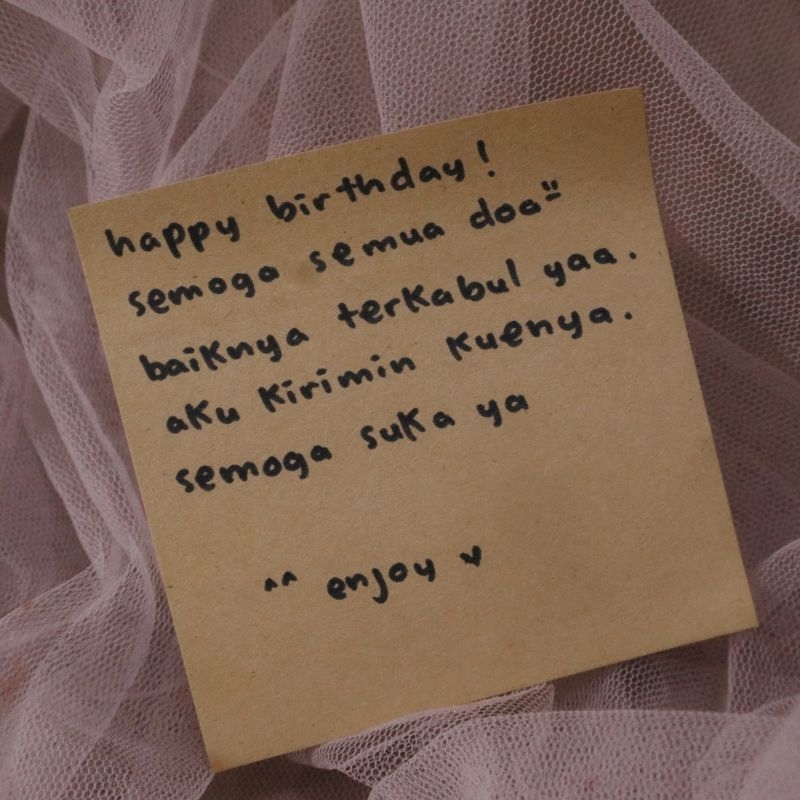 happy birthday!
semoga semua doa"
baiknya terkabul yaa.
aku kirimin kuenya.
semoga suka ya
^^ enjoy ♥